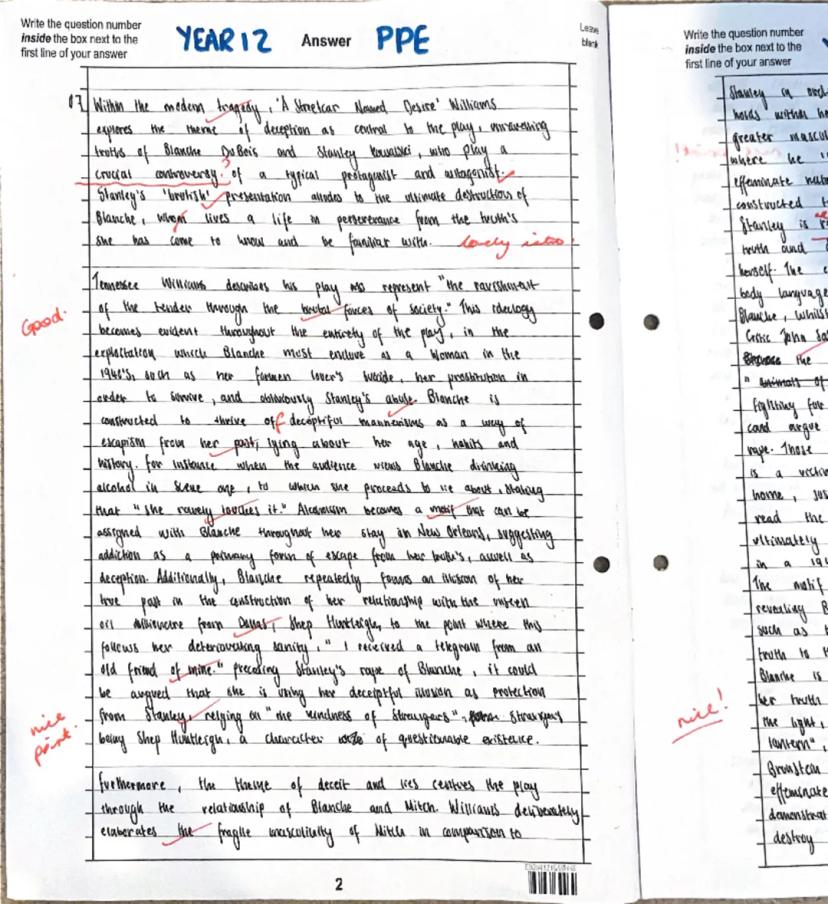 Write the question number
inside the box next to the
first line of your answer
YEAR 12 Answer PPE
Leave
blank
07 Within the modern tragedy, 'A Streetcar Named Desire' Williams
explores the theme of deception as central to the play, unravelling
truths of Blanche DuBois and Stanley Kowalski, who play a
crucial controversy ? of a typical protagonist and antagonist.
Stanley's 'brutish' presentation alludes to the ultimate destruction of
Blanche, whom lives a life in perseverance from the truth's
she has come to know and be familiar with. lovely intro!
Tennessee Williams describes his play to represent "the ravishment
of the tender through the brutal forces of society." This ideology
Good.
becomes evident throughout the entirety of the play, in the
exploitation which Blanche must endure as a Woman in the
1940's, such as her former lover's suicide, her prostitution in
order to survive, and obviously Stanley's abuse. Blanche is
constructed to thrive off deceptiful mannerisms as a way of
escapism from her past, lying about her age, habits and
history. For instance when the audience views Blanche drinking
alcohol in scene one, to which she proceeds to lie about, stating
that "she rarely touches it." Alcoholism becomes a motif that can be
assigned with Blanche throughout her stay in New Orleans, suggesting
addiction as a primary form of escape from her truth's, aswell as
deception. Additionally, Blanche repeatedly forms an illusion of her
true past in the construction of her relationship with the unseen
oil millionaire from Dallas, Shep Huntleigh, to the point where this
follows her deteriorating sanity, "I received a telegram from an
old friend of mine." preceding Stanley's rape of Blanche, it could
be argued that she is using her deceptful illusion as protection
from Stanley, relying on "the kindness of strangers", strangers
nice
point.
being Shep Huntleigh, a character of questionable existence.
Furthermore, the theme of deceit and lies centres the play
through the relationship of Blanche and Mitch. Williams deliberately
elaborates the fragile masculinity of Mitch in comparison to
2
Write the question number
inside the box next to the
first line of your answer
Stanley in
holds within
greater
where he
effeminate
constructed
Stanley is
truth and
herself. The
body language
Blanche, whilst
Critic John
the
" of
fighting for
could argue
rape. Those
is a victim
home,
read the
ultimately
in a
The motif
revealing
such as
truth to
Blanche is
her truth
nice!
the light,
lantern",
effeminate
destroy